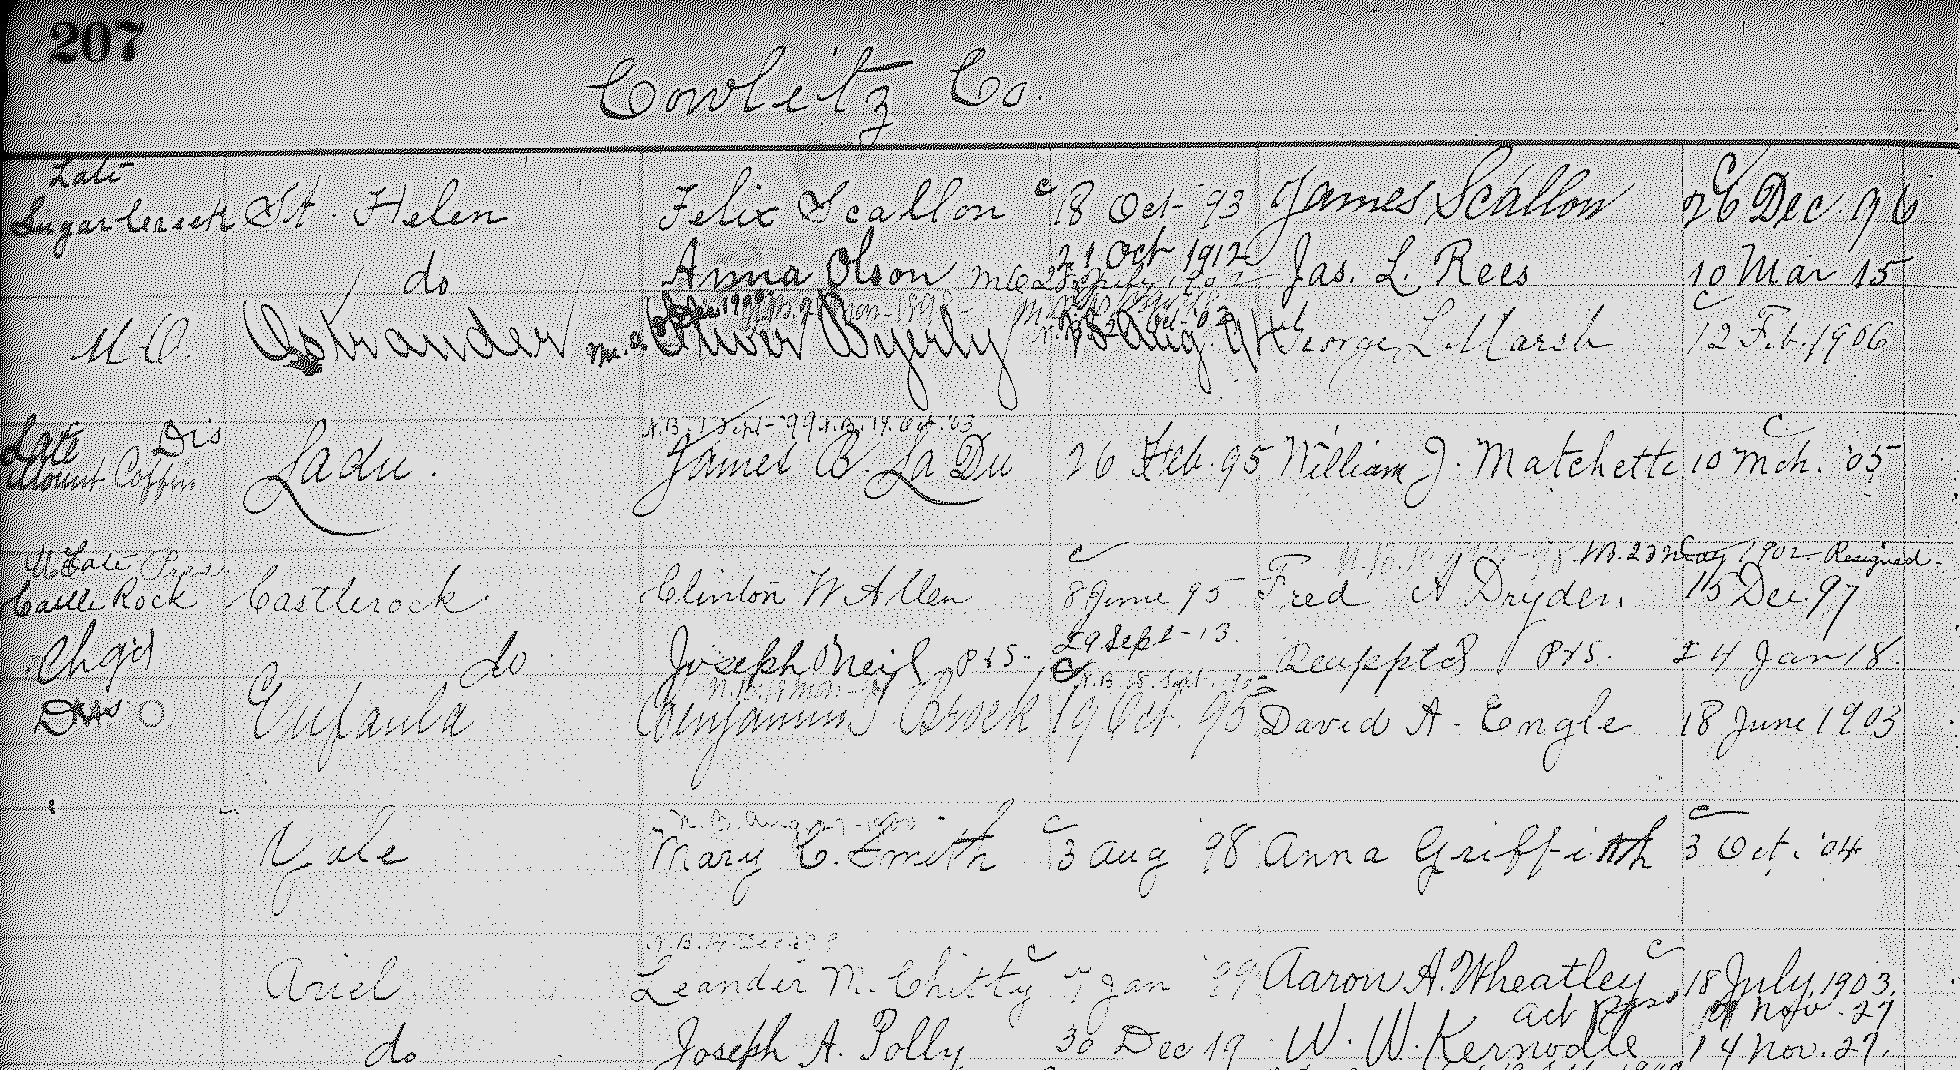 207
Cowlitz Co
Late
Sugar Creek St. Helen Felix Scallon c 18 Oct 93 James Scallon c 26 Dec 96
do Anna Olson 21 Oct 1912 Jas. L. Rees 10 Mar 15
M.O. Ostrander m.o. Oliver Byerly Aug George L. Marsh c 12 Feb. 1906
N.B. 1 Sept-99 N.B. 14. Oct. '03
Late Dis
Mount Coffin Ladu. James B. La Du 26 Feb. 95 William J. Matchette c 10 Mch. '05
Late c 1902 Resigned.
Castle Rock Castlerock Clinton W Allen 8 June 95 Fred A Dryden. 15 Dec. 97
Chgd do Joseph O'Neil P&S. 29 Sept-13. Reappted P&S. 24 Jan 18.
Eufaula Benjamin Brock c 19 Oct. 95 David A. Engle 18 June 1903
Yale Mary C. Smith c 3 Aug 98 Anna Griffith c 3 Oct. '04
Ariel Leander M. Chitty c 7 Jan '99 Aaron A. Wheatley c 18 July, 1903.
act Nov. 27
do Joseph A. Polly 30 Dec 19 W. W. Kernodle 14 Nov. 27.